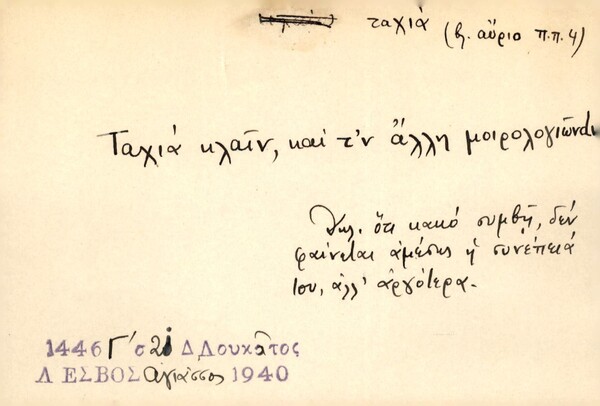 ταχιά (βλ. αὔριο π.π. 4)
Ταχιά κλαῖν, καί τ'ν ἄλλη μοιρολογιῶνται
Δηλ. ὅτι κακό συμβῆ, δέν
φαίνεται ἀμέσως ἡ συνέπειά
του, ἀλλ' ἀργότερα.
1446 Γ' σ 21 Δ Δουκᾶτος
ΛΕΣΒΟΣ Ἀγιάσσος 1940